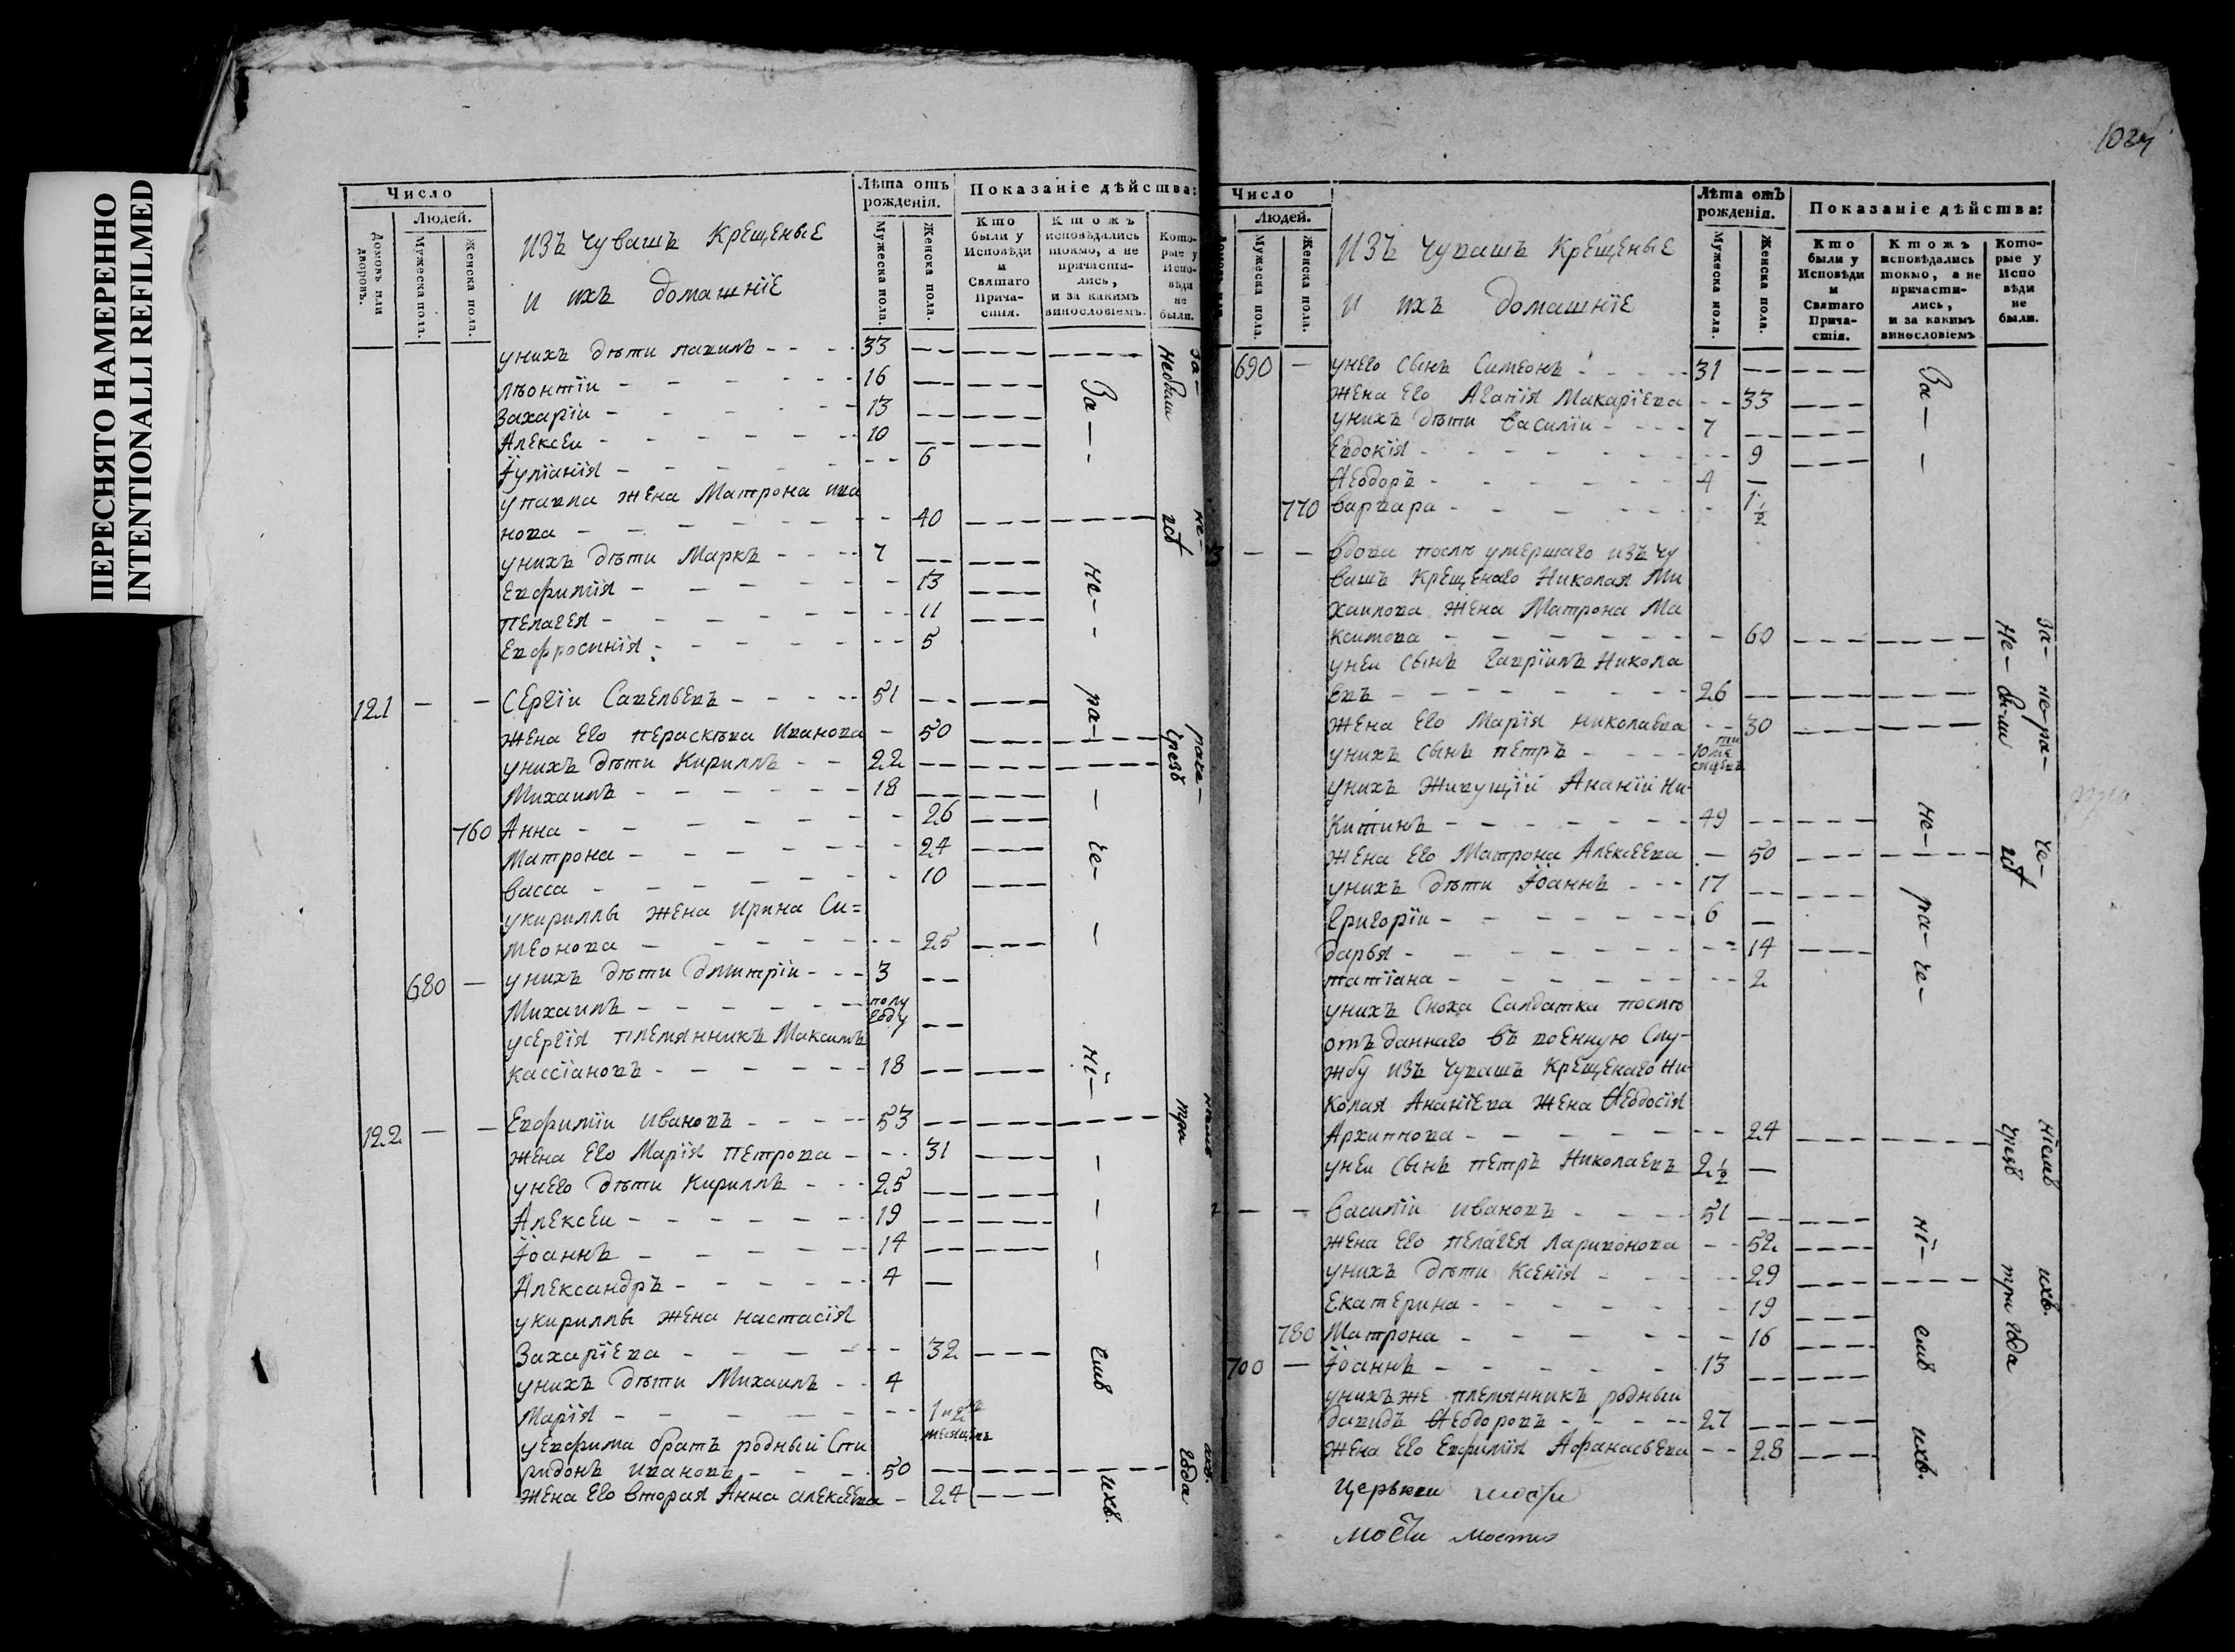 ПЕРЕСНЯТО НАМЕРЕННО
INTENTIONALLI REFILMED
Число
Людей.
Домовъ или дворовъ.
Мужеска пола.
Женска пола.
изъ чувашъ крещеные
и ихъ домашніе
Лѣта отъ рожденія.
Мужеска пола.
Женска пола.
Показаніе дѣйства:
Кто были у Исповѣди и Святаго Причастія.
Ктожъ исповѣдались токмо, а не причастились, и за какимъ винословіемъ.
Которые у Исповѣди не были.
унихъ дѣти павилъ 33
лѣонтіи 16
Захаріи 13
Алексеи 10
Іуліанія 6
упавла жена Матрона ива
нова 40
унихъ дѣти Маркъ 7
Евфимія 13
пелагея 11
Евфросинія 5
121 — — Сергіи Савельевъ 51
жена его пераскѣва Иванова 50
унихъ дѣти Кириллъ 22
Михаилъ 18
760 Анна 26
Матрона 24
васса 10
укириллы жена Ирина Си=
меонова 25
680 — унихъ дѣти дмитріи 3
Михаилъ полу году
усергія племянникъ Максимъ
кассіановъ 18
122 — — Евфиміи Ивановъ 53
жена его Марія Петрова 31
унего дѣти Кириллъ 25
Алексеи 19
Іоаннъ 14
Александръ 4
укириллы жена настасія
Захаріева 32
унихъ дѣти Михаилъ 4
Марія 1 и 2 месяцовъ
уевфима братъ родныи Спи
ридонъ ивановъ 50
жена его вторая Анна алексеева 24
За — не — ра — че — ні — емъ ихъ.
1024
Число
Людей.
Мужеска пола.
Женска пола.
изъ чувашъ крещеные
и ихъ домашніе
Лѣта отъ рожденія.
Мужеска пола.
Женска пола.
Показаніе дѣйства:
Кто были у Исповѣди и Святаго Причастія.
Ктожъ исповѣдались токмо, а не причастились, и за какимъ винословіемъ
Которые у Исповѣди не были.
690 — унего сынъ Симеонъ 31
жена его Агапія Макаріева 33
унихъ дѣти василіи 7
Евдокія 9
Ѳеодоръ 4
770 варвара 1 1/2
— — вдова послѣ умершаго изъ чу
вашъ крещенаго Николая Ми
хаилова жена Матрона Ма
ксимова 60
унеи сынъ гавріилъ Никола
евъ 26
жена его Марія николаева 30
унихъ сынъ петръ 10 ти месяцевъ
унихъ живущій Ананій Ни-
китинъ 49
жена его Матрона Алексеева 50
унихъ дѣти Іоаннъ 17
григоріи 6
дарья 14
татіана 2
унихъ сноха салдатка послѣ
отъданнаго въ военную слу-
жбу изъ чувашъ крещенаго Ни-
колая Ананіева жена Ѳеодосія
Архипова 24
унеи сынъ петръ Николаевъ 2 1/2
— — василіи ивановъ 51
жена его пелагея ларивонова 52
унихъ дѣти Ксенія 29
Екатерина 19
780 Матрона 16
700 — Іоаннъ 13
унихъже племянникъ родныи
давидъ Ѳеодоровъ 27
жена его Евфимія Афанасьева 28
За — не — ра — че — ні — емъ ихъ.
За — не — ра — че — ніемъ ихъ.
Не — были
чрезъ три года
Церькви